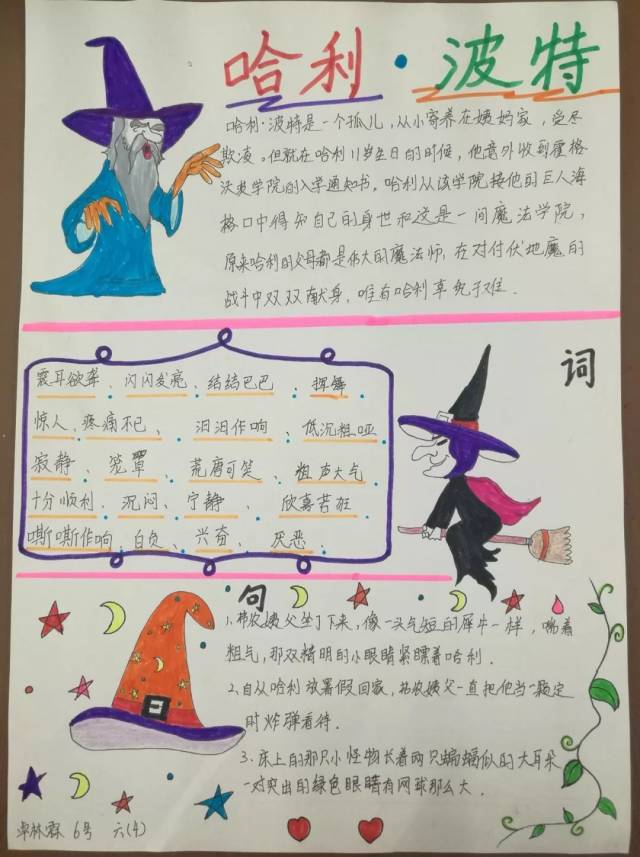 哈利·波特
哈利·波特是一个孤儿,从小寄养在姨妈家,受尽
欺凌。但就在哈利11岁生日的时候,他意外收到霍格
沃茨学院的入学通知书。哈利从该学院接他的巨人海
格口中得知自己的身世和这是一间魔法学院,
原来哈利的父母都是伟大的魔法师,在对付伏地魔的
战斗中双双献身,唯有哈利幸免于难.
词
震耳欲聋、闪闪发亮、结结巴巴、挥舞
惊人、疼痛不已、汩汩作响、低沉粗哑
寂静、笼罩、荒唐可笑、粗声大气
十分顺利、沉闷、宁静、欣喜若狂
嘶嘶作响、自负、兴奋、厌恶.
句
1.弗农姨父坐了下来,像一头气短的犀牛一样,喘着
粗气,那双精明的小眼睛紧瞟着哈利.
2.自从哈利放暑假回家,弗农姨父一直把他当一颗定
时炸弹看待.
3.床上的那只小怪物长着两只蝙蝠似的大耳朵
一对突出的绿色眼睛有网球那么大.
林霖 6号 六(4)